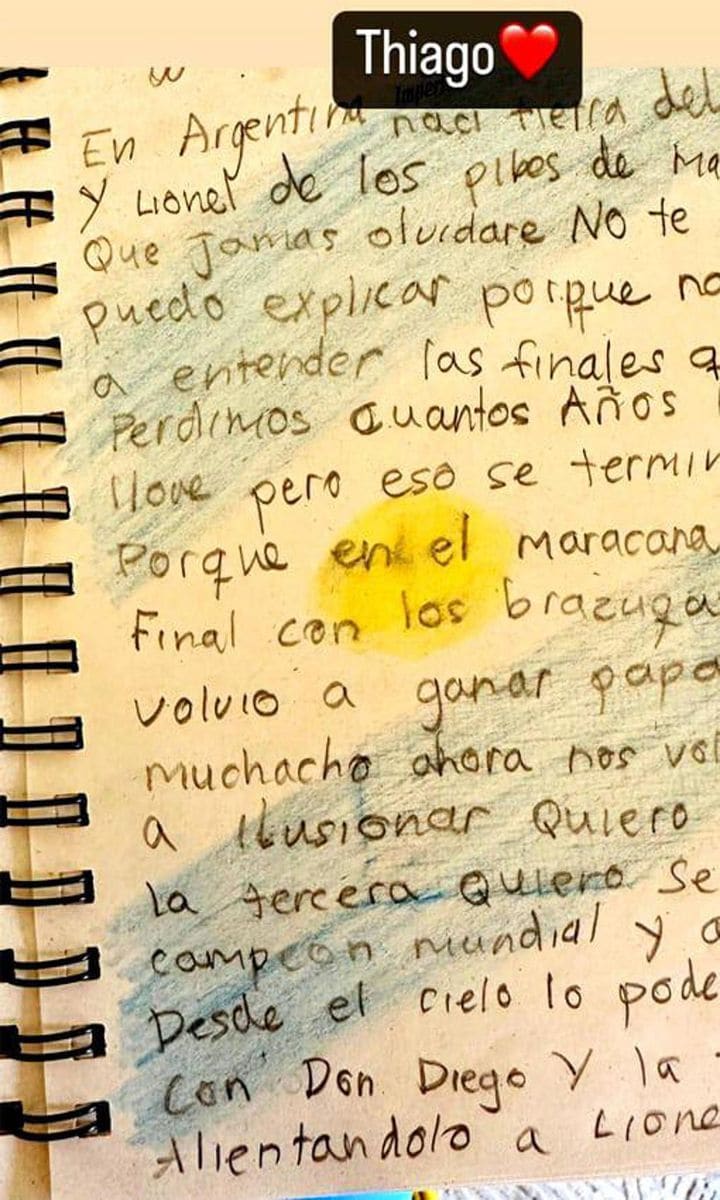 Thiago❤️
En Argentina naci tierra del
Y Lionel de los pibes de Ma
Que Jamas olvidare No te
puedo explicar porque no
a entender las finales q
Perdimos cuantos Años
llore pero eso se termin
Porque en el maracana
Final con los brazuga
volvio a ganar papa
muchacho ahora nos vol
a Ilusionar Quiero
la tercera Quiero Se
campeon mundial y a
Desde el cielo lo pode
Con Don Diego Y la
Alientandolo a Lione